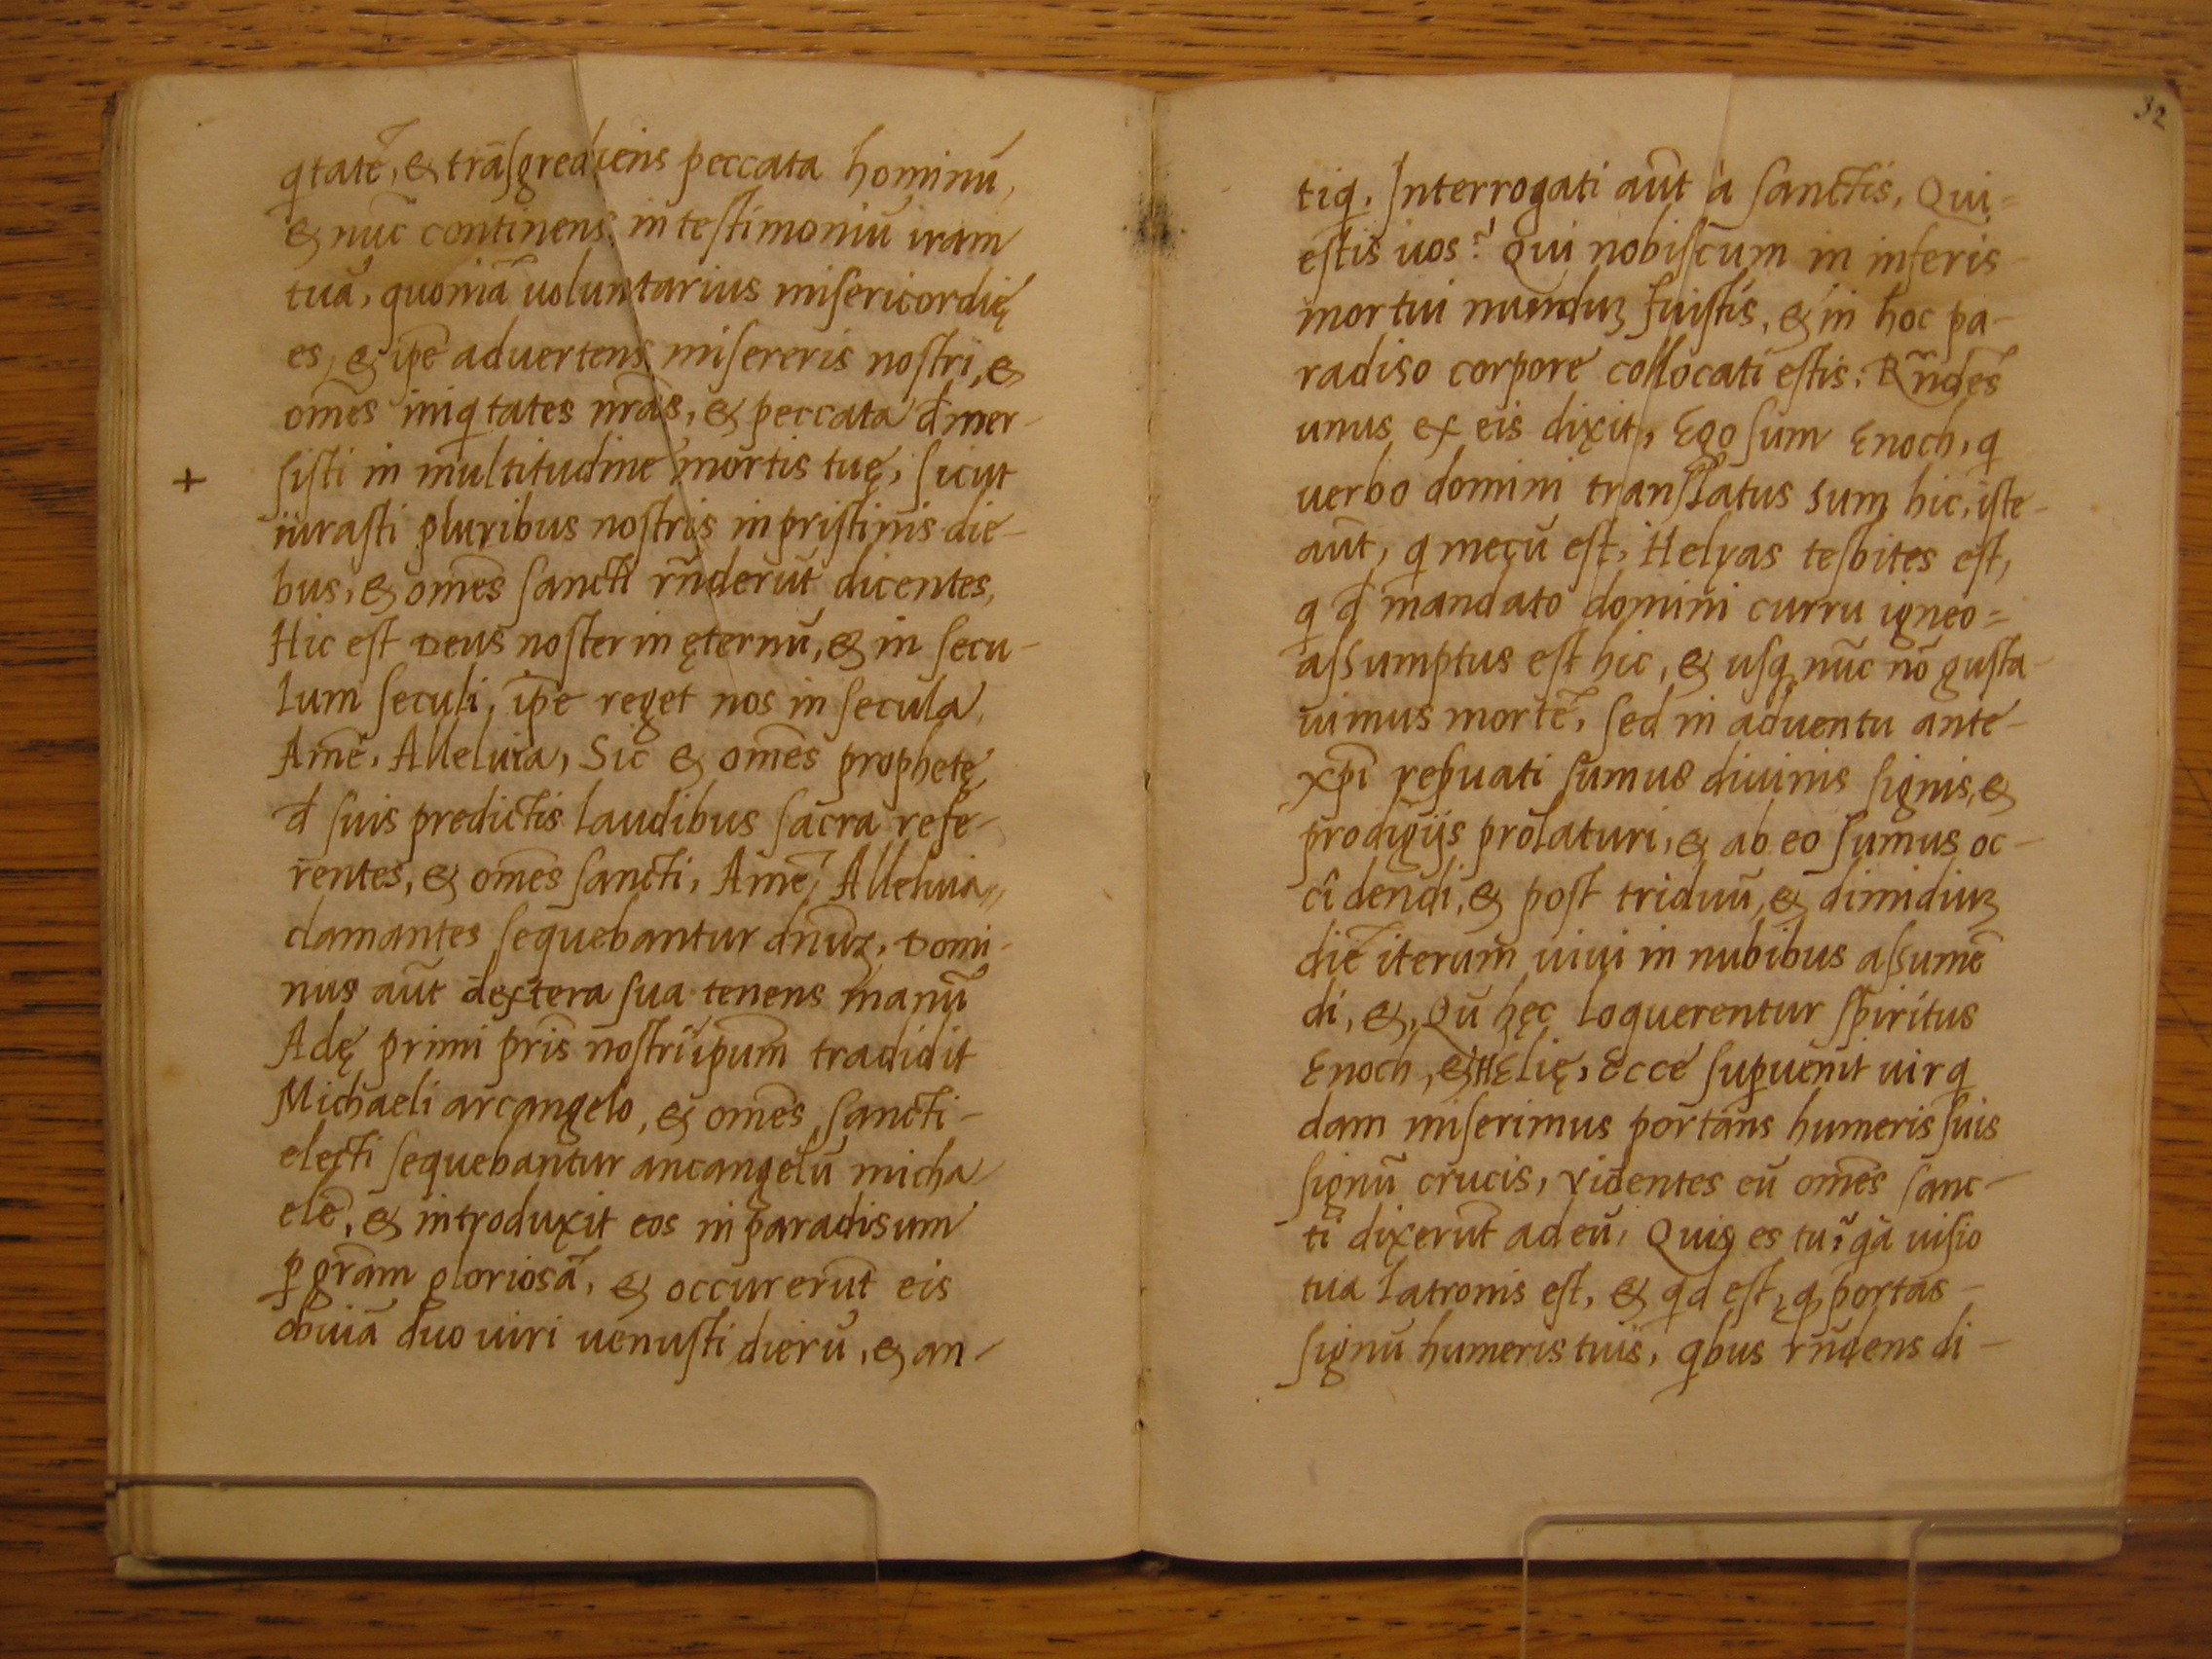 qtatē, & trāſgrediens peccata hominū,
& nūc continens in teſtimoniū iram
tuā, quoniā uoluntarius miſericordię
es, & ip̄e aduertens miſereris noſtri, &
om̄es iniqtates nr̄as, & peccata dmer-
ſiſti in multitudine mortis tuę, ſicut
iuraſti pluribus noſtris in priſtinis die-
bus, & om̄es ſancti rn̄derūt dicentes,
Hic eſt Deus noſter in ęternū, & in ſecu-
lum ſeculi, ip̄e reget nos in ſecula,
Amē, Alleluia, Sic & om̄es prophetę
d ſuis predictis laudibus ſacra refe-
rentes, & om̄es ſancti, Amē, Alleluia,
clamantes ſequebantur dn̄uꝫ, Domi-
nus aūt dextera ſua tenens manū
Adę primi pr̄is noſtri ip̄um tradidit
Michaeli arcangelo, & om̄es ſancti-
electi ſequebantur ancangelū micha
elē, & introduxit eos in paradisum
ꝑ gr̄am glorioſā, & occurerūt eis
obuiā duo uiri uenuſti dierū, & an-
32
tiq. Interrogati aūt à ſanctis, Qui=
eſtis uos? Qui nobiſcum in inferis
mortui nunduꝫ fuiſtis, & in hoc pa-
radiso corpore collocati eſtis: Rñdēs
unus ex eis dixit, Ego ſum Enoch, q
uerbo domini tranſlatus sum hic, iſte-
aūt, q mecū eſt, Helyas teſbites eſt,
q d mandato domini curru igneo=
aſſumptus eſt hic, & uſq nūc nō guſta-
uimus mortē, ſed in aduentu ante-
xp̄i reꝑuati ſumus diuinis ſignis, &
prodigijs prolaturi, & ab eo ſumus oc-
cidendi, & poſt triduū, & dimidiuꝫ
diē iterum uiui in nubibus aſſumē
di, &, Qū hęc loquerentur ſpiritus
Enoch, & Helię, Ecce ſuꝑuenit uir q
dam miſerimus portans humeris ſuis
ſignū crucis, Videntes eū om̄es ſanc-
ti dixerūt ad eū, Quis es tu? qā uiſio
tua latronis eſt, & qd eſt, q portas-
ſignū humeris tuis, qbus rn̄dens di-